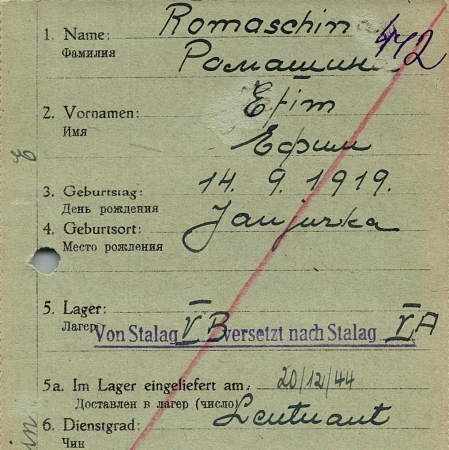 1. Name: Romaschin
Фамилия Ромашин
442
2. Vornamen: Efim
Имя Ефим
3. Geburtstag: 14. 9. 1919.
День рождения
4. Geburtsort: Janjurka
Место рождения
5. Lager:
Лагерь Von Stalag V B versetzt nach Stalag V A
5a. Im Lager eingeliefert am: 20/12/44
Доставлен в лагерь (число)
6. Dienstgrad: Leutnant
Чин